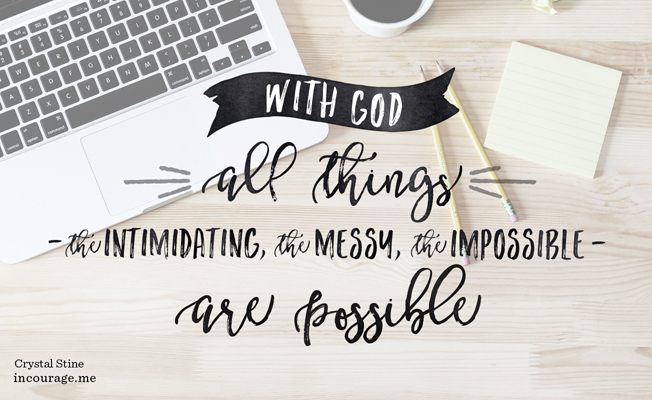 WITH GOD
all things
- the INTIMIDATING, the MESSY, the IMPOSSIBLE -
are possible
Crystal Stine
incourage.me